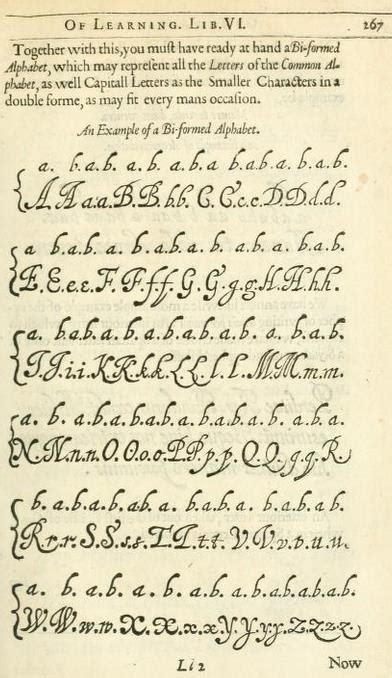 OF LEARNING. LIB.VI. 267
Together with this,you muſt have ready at hand a Bi-formed
Alphabet, which may repreſent all the Letters of the Common Al-
phabet, as well Capitall Letters as the Smaller Characters in a
double forme, as may fit every mans occaſion.
An Example of a Bi-formed Alphabet.
a. b.a.b. a. b. a.b.a b.a.b. a.b.a.b.
A A a.a.B.B.b.b. C.C.c.c.D.D.d.d.
a b.a.b. a. b. a.b.a. b. a.b.a. b.a.b.
E.E.e.e.F.F.f.f.G.G.g.g.H.H.h.h.
a. b.a.b.a. b.a.b.a. b.a.b. a. b.a.b.
I.I.i.i.K.K.k.k.L.L.l.l.M.M.m.m.
a. b. a.b.a. b.a.b.a.b.a.b. a. b.a.
N.N.n.n.O.O.o.o.P.P.p.p.Q.Q.q.q.R.
b. a.b.a.b.ab. a. b.a.b.a. b.a.b.a.b.
R.r.r.S.S.s.s.T.T.t.t.V.V.v.v.u.u.
a. b. a.b. a. b. a.b.a. b.a.b.a.b.a.b.
W.W.w.w.X.X.x.x.Y.Y.y.y.Z.Z.z.z.
Ll2 Now